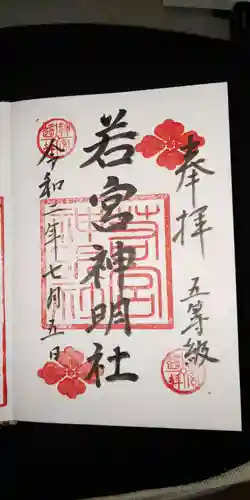 奉拝
五等級
若宮神明社
令和二年七月五日